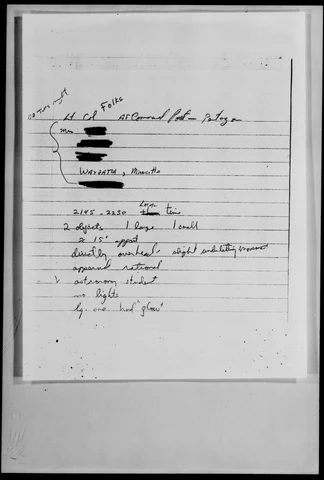 Lt Col Folks AF Command Post -
Mrs
WAYZATTA, Minnesotta
2145 - 2250 Local time
2 objects 1 large 1 small
≈ 15° appart
directly overhead slight undulating movement
appeared rational
astronomy student
no lights
lg. one had "glow"